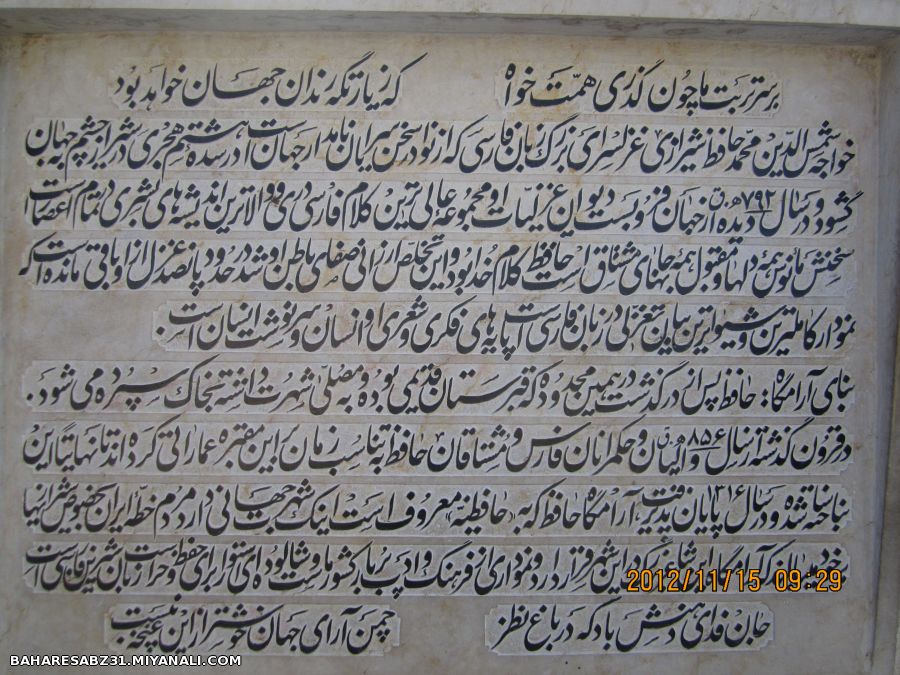 بر سر تربت ما چون گذری همت خواه که زیارتگه رندان جهان خواهد بود
خواجه شمس الدین محمد حافظ شیرازی غزلسرای بزرگ زبان فارسی که از نوادر سخن سرایان نامدار جهانست در سده هشتم هجری در شیراز چشم به جهان
گشود و در سال ۷۹۲ ه.ق دیده از جهان فرو بست دیوان غزلیات او مجموعه عالی ترین کلام فارسی دری و والاترین اندیشه های بشری در تمام اعصار است
سخنش مأنوس همه دلها و مقبول همه جانهای مشتاق است حافظ کلام خدا بود و این تخلص ارزانی صفای باطن او شد در حدود پانصد غزل از او باقی مانده است که
نمودار کاملترین و شیواترین بیان تغزلی در زبان فارسی است پایه های فکری و شعری او انسان و سرنوشت انسان است.
بنای آرامگاه: حافظ پس از درگذشت در همین محدوده که قبرستان قدیمی بوده و به مصلی شهرت داشته بخاک سپرده می شود.
در قرون گذشته از سال ۸۵۶ ه.ق والیان و حکمرانان فارس و مشتاقان حافظ به تناسب زمان بر این مقبره عماراتی کرده اند تا نهایتاً این
بنا ساخته شده و در سال ۱۳۱۶ پایان پذیرفت، آرامگاه حافظ که به «حافظیه» معروف است اینک شهرت جهانی دارد مردم خطه ایران بخصوص شیرازیها
که آرامگاه او در این شهر قرار دارد و نموداری از فرهنگ و ادب پربار کشور ماست و شالوده ای استوار برای حفظ و حراست زبان شیرین فارسی است
جان فدای دهنش باد که در باغ نظر چمن آرای جهان خوشتر از این غنچه نبست
2012/11/15 09:29
BAHARESABZ31.MIYANALI.COM